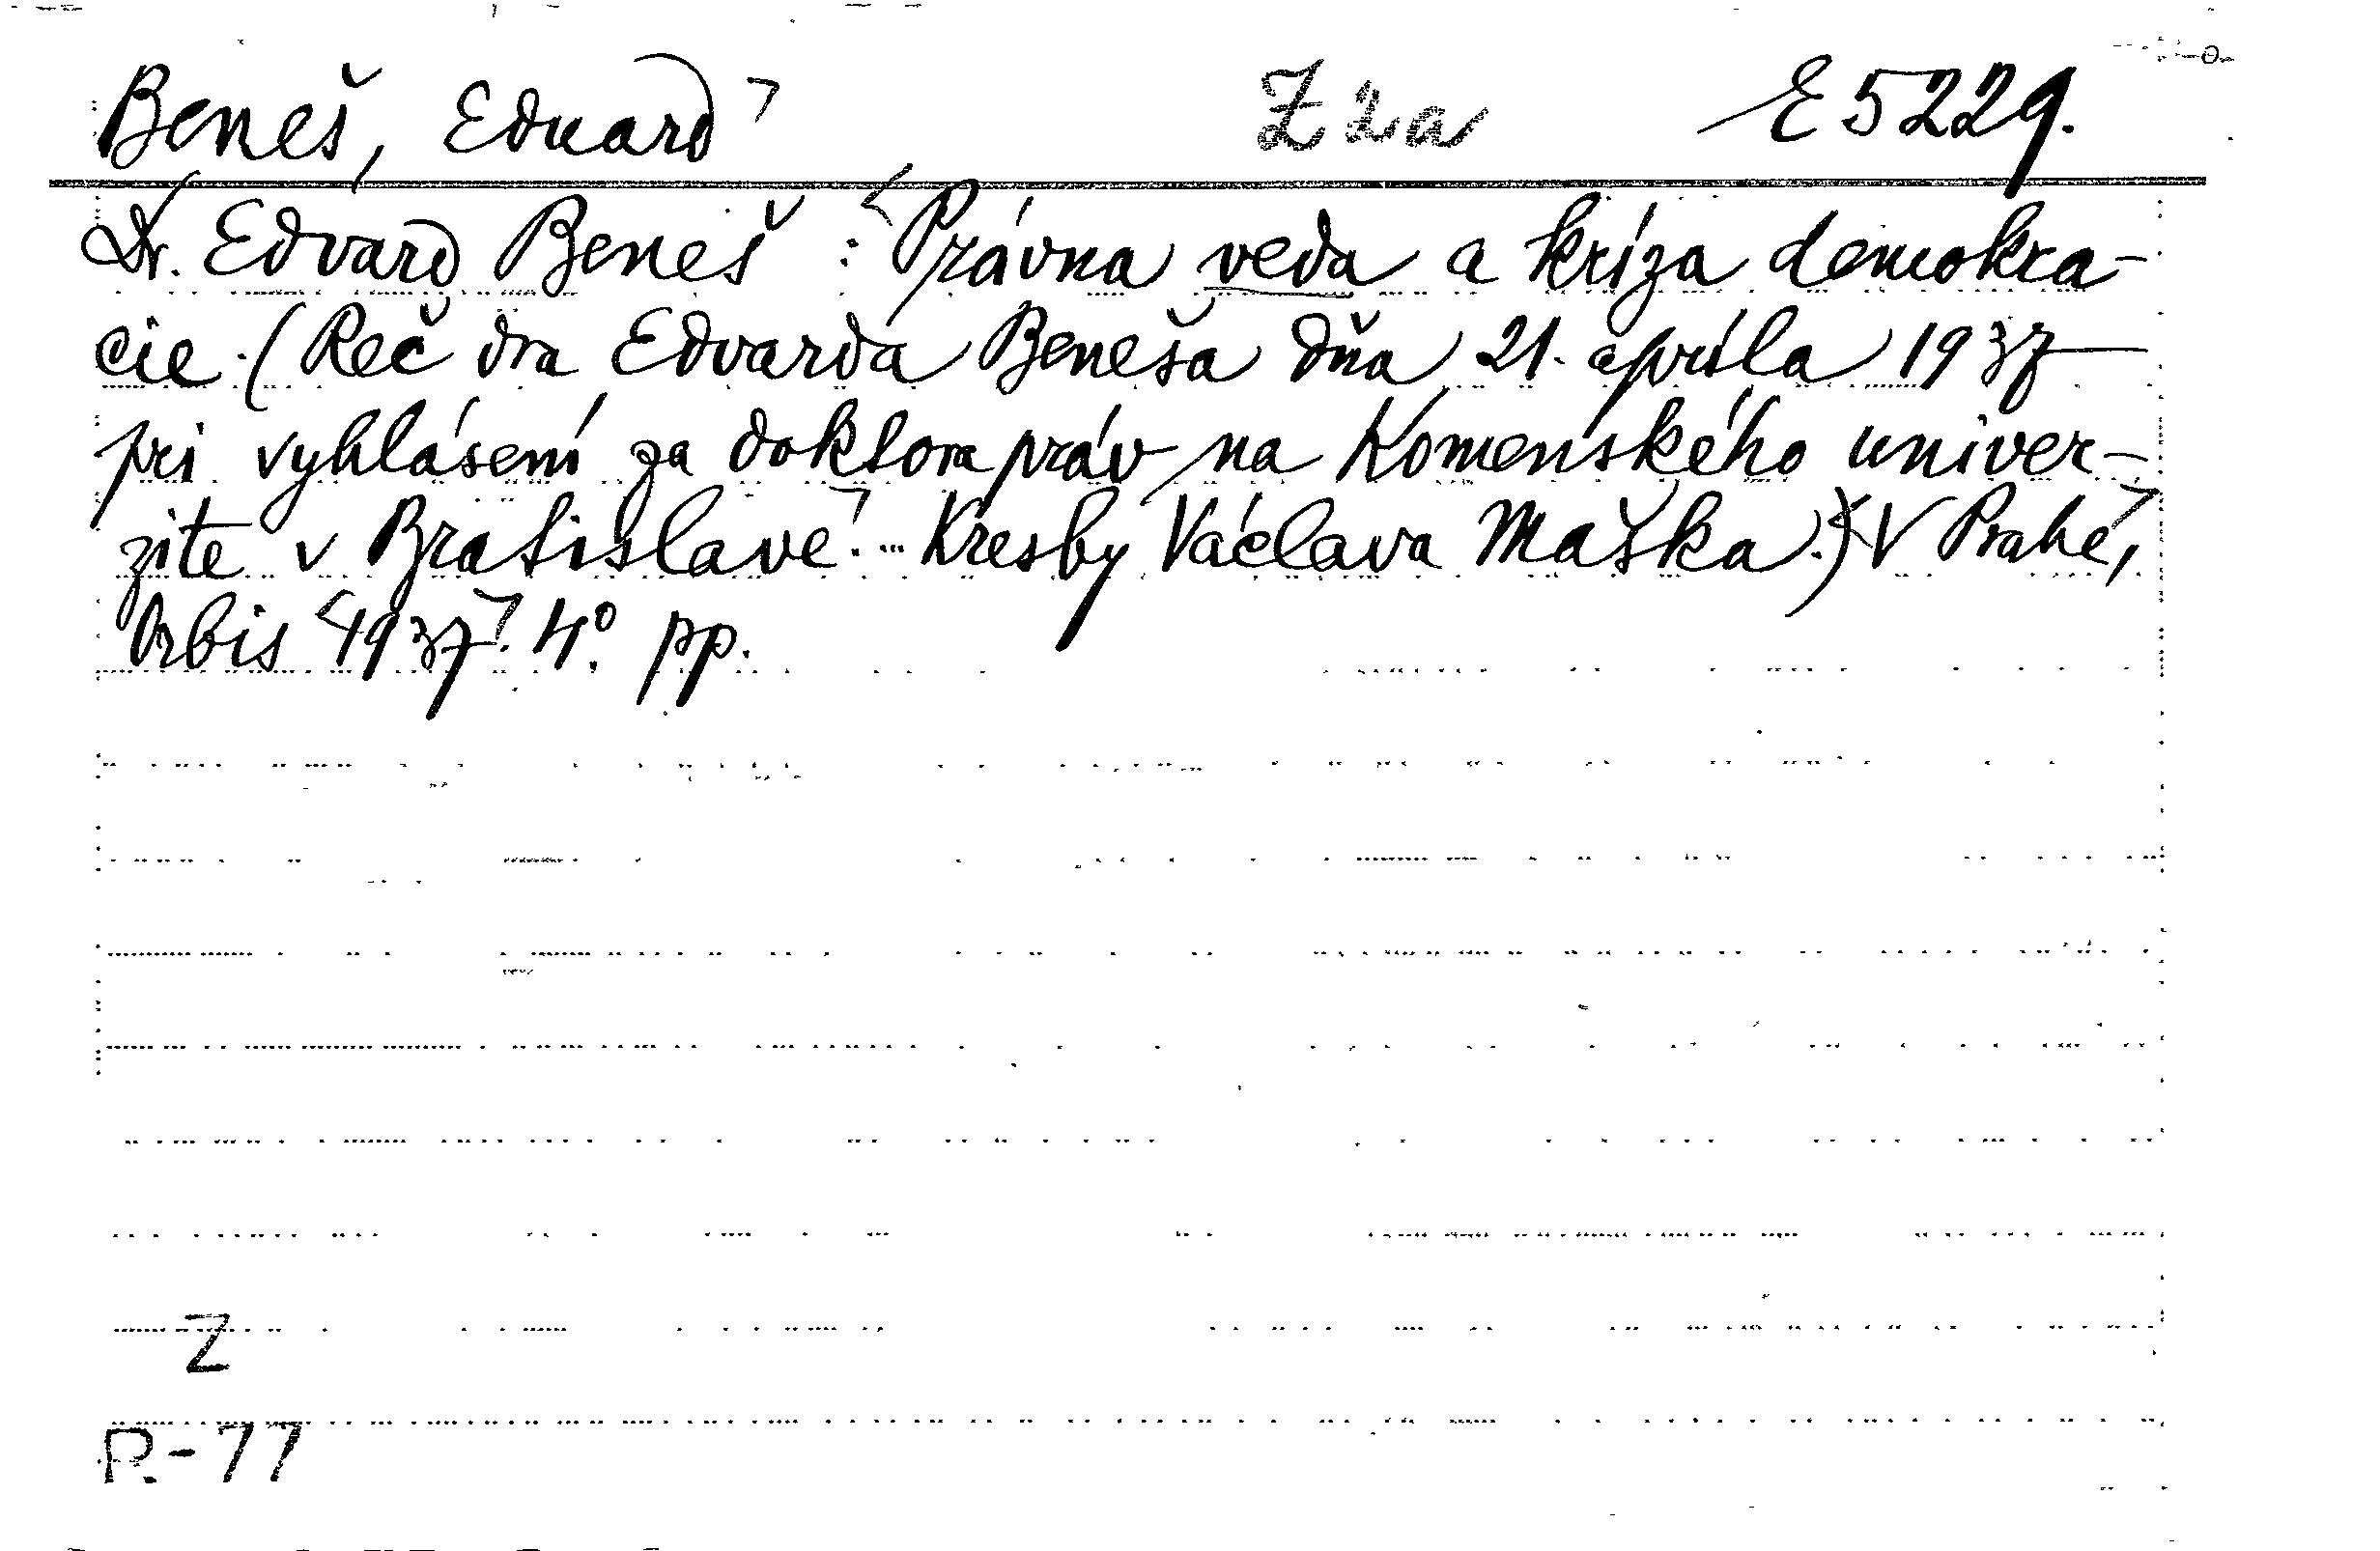 Beneš, Eduard E 5229.
Dr. Edvard Beneš : Právna veda a kríza demokra-
cie. (Reč dra Edvarda Beneša dňa 21. apríla 1937
pri vyhlásení za doktora práv na Komenského univer-
zite v Bratislave. ... Kresby Václava Maška.) V Prahe,
Orbis 1937. 4°. pp.
Z
R-77